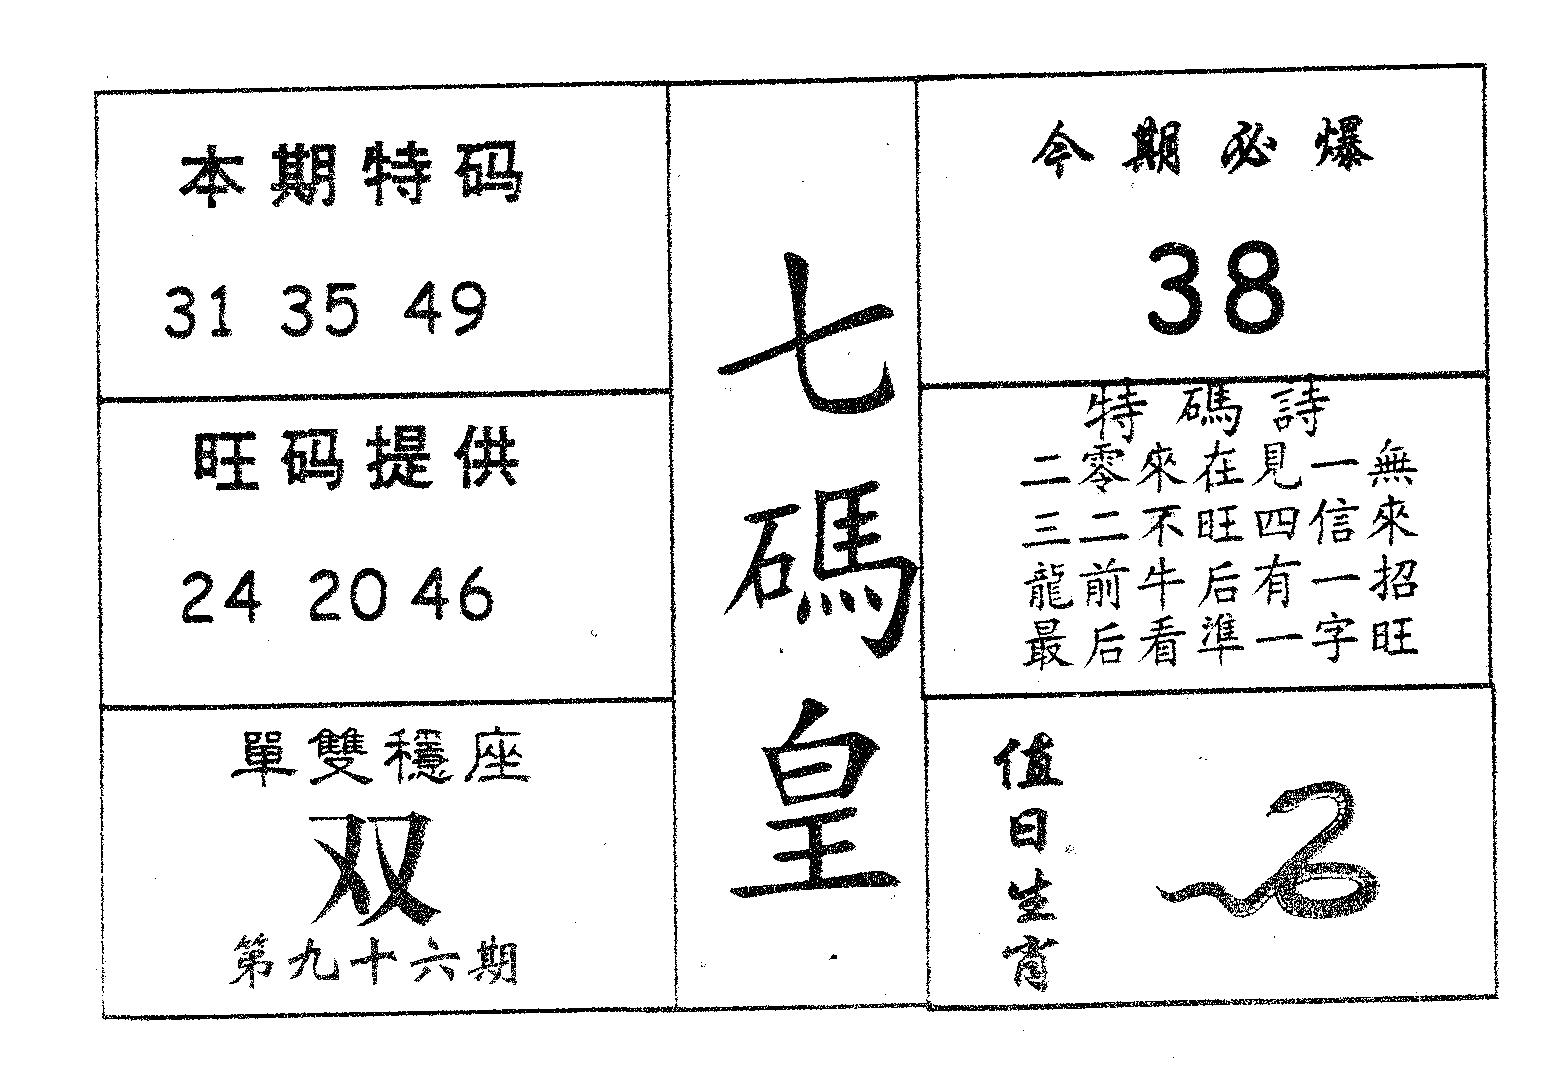 本期特码
31 35 49
旺码提供
24 20 46
單雙穩座
双
第九十六期
七碼皇
今期必爆
38
特碼詩
二零來在見一無
三二不旺四信來
龍前牛后有一招
最后看準一字旺
值日生肖